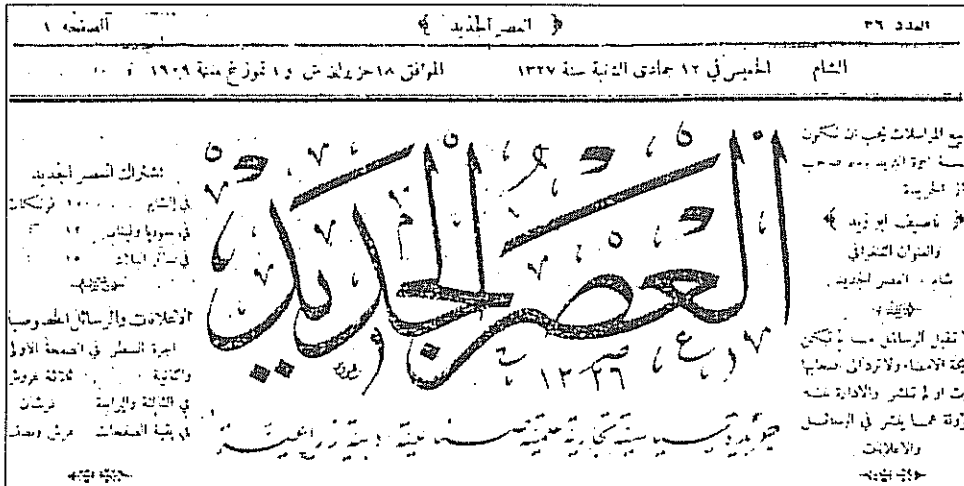 العدد ٣٦ ﴿ العصر الجديد ﴾ الصفحه ١
الشام الخميس في ١٢ جمادى الثانية سنة ١٣٢٧ الموافق ١٨ حزيران ش و ١ تموز غ سنة ١٩٠٩
المراسلات يجب ان تكون
اجرة البريد صاحب
الجريدة
﴿ ناصيف ابو زيد ﴾
والعنوان التلغرافي
شام . العصر الجديد .
تقبل الرسائل ما لم تكن
الامضاء ولا ترد الى اصحابها
او لم تنشر والادارة غير
عما ينشر في الرسائل
والاعلانات
العصر الجديد
١٣٢٦
جريدة سياسية تجارية علمية صناعية ادبية زراعية
اشتراك العصر الجديد
في الشام ١٠ فرنكات
في سوريا ولبنان ١٢
في سائر البلاد ١٥
الاعلانات والرسائل الخصوصية
اجرة السطر في الصفحة الاولى
والثانية ثلاثة غروش
في الثالثة والرابعة غرشان
في بقية الصفحات غرش ونصف